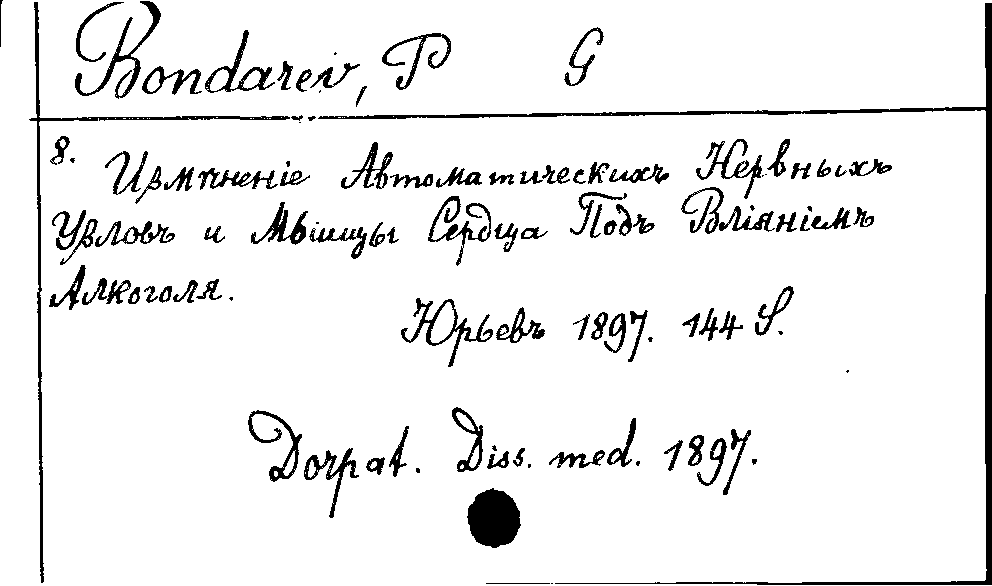 Bondarev, P G
8. Измѣненіе Автоматическихъ Нервныхъ
Узловъ и Мышцы Сердца Подъ Вліяніемъ
Алкоголя.
Юрьевъ 1897. 144 S.
Dorpat. Diss. med. 1897.